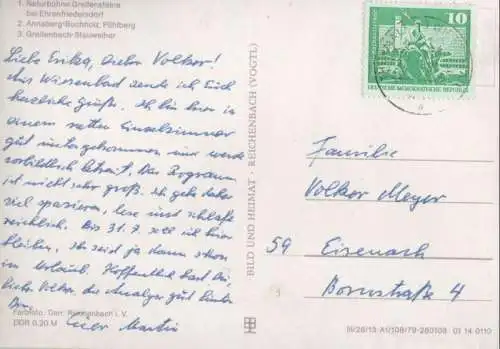 1. Naturbühne Greifensteine
bei Ehrenfriedersdorf
2. Annaberg-Buchholz, Pöhlberg
3. Greifenbach-Stauweiher
Liebe Erika, Lieber Volker!
Aus Wiesenbad sende ich Euch
herzliche Grüße. Ich bin hier in
einem netten Einzelzimmer
gut untergekommen und werde
vorbildlich betreut. Das Programm
ist nicht sehr groß. Ich gehe daher
viel spazieren, lese und schlafe
reichlich. Bis 31.7. soll ich hier
bleiben. Ihr seid ja dann schon
im Urlaub. Hoffentlich hast Du,
lieber Volker, die
Euer Martin
Farbfoto: Darr, Reichenbach i. V.
DDR 0,20 M
BILD UND HEIMAT · REICHENBACH (VOGTL)
10
DEUTSCHE DEMOKRATISCHE REPUBLIK
Familie
Volker Meyer
59 Eisenach
Bornstraße 4
III/26/13 A1/108/79-280108 01 14 0110